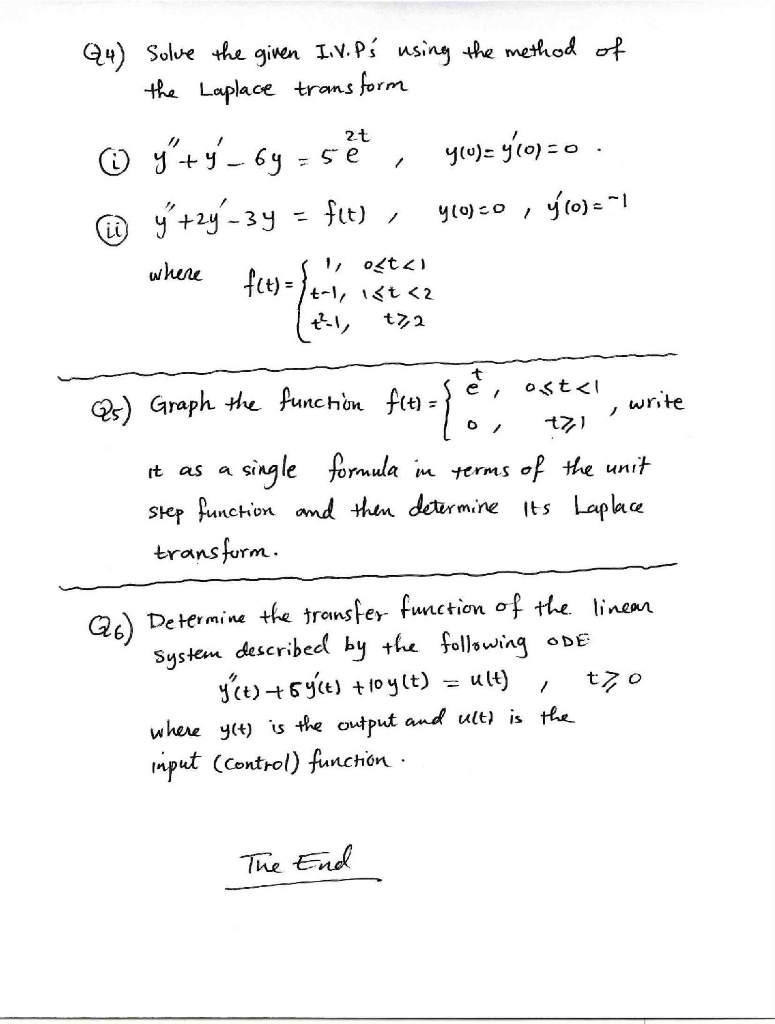 Q4) Solve the given I.V.P's using the method of
the Laplace transform
(i) y'' + y' - 6y = 5e^{2t} , y(0) = y'(0) = 0 .
(ii) y'' + 2y' - 3y = f(t) , y(0) = 0 , y'(0) = -1
where f(t) = { 1, 0≤t<1
t-1, 1≤t<2
t²-1, t≥2
Q5) Graph the function f(t) = { e^t , 0≤t<1
0 , t≥1 , write
it as a single formula in terms of the unit
step function and then determine its Laplace
transform.
Q6) Determine the transfer function of the linear
system described by the following ODE
y''(t) + 5y'(t) + 10y(t) = u(t) , t≥0
where y(t) is the output and u(t) is the
input (control) function .
The End